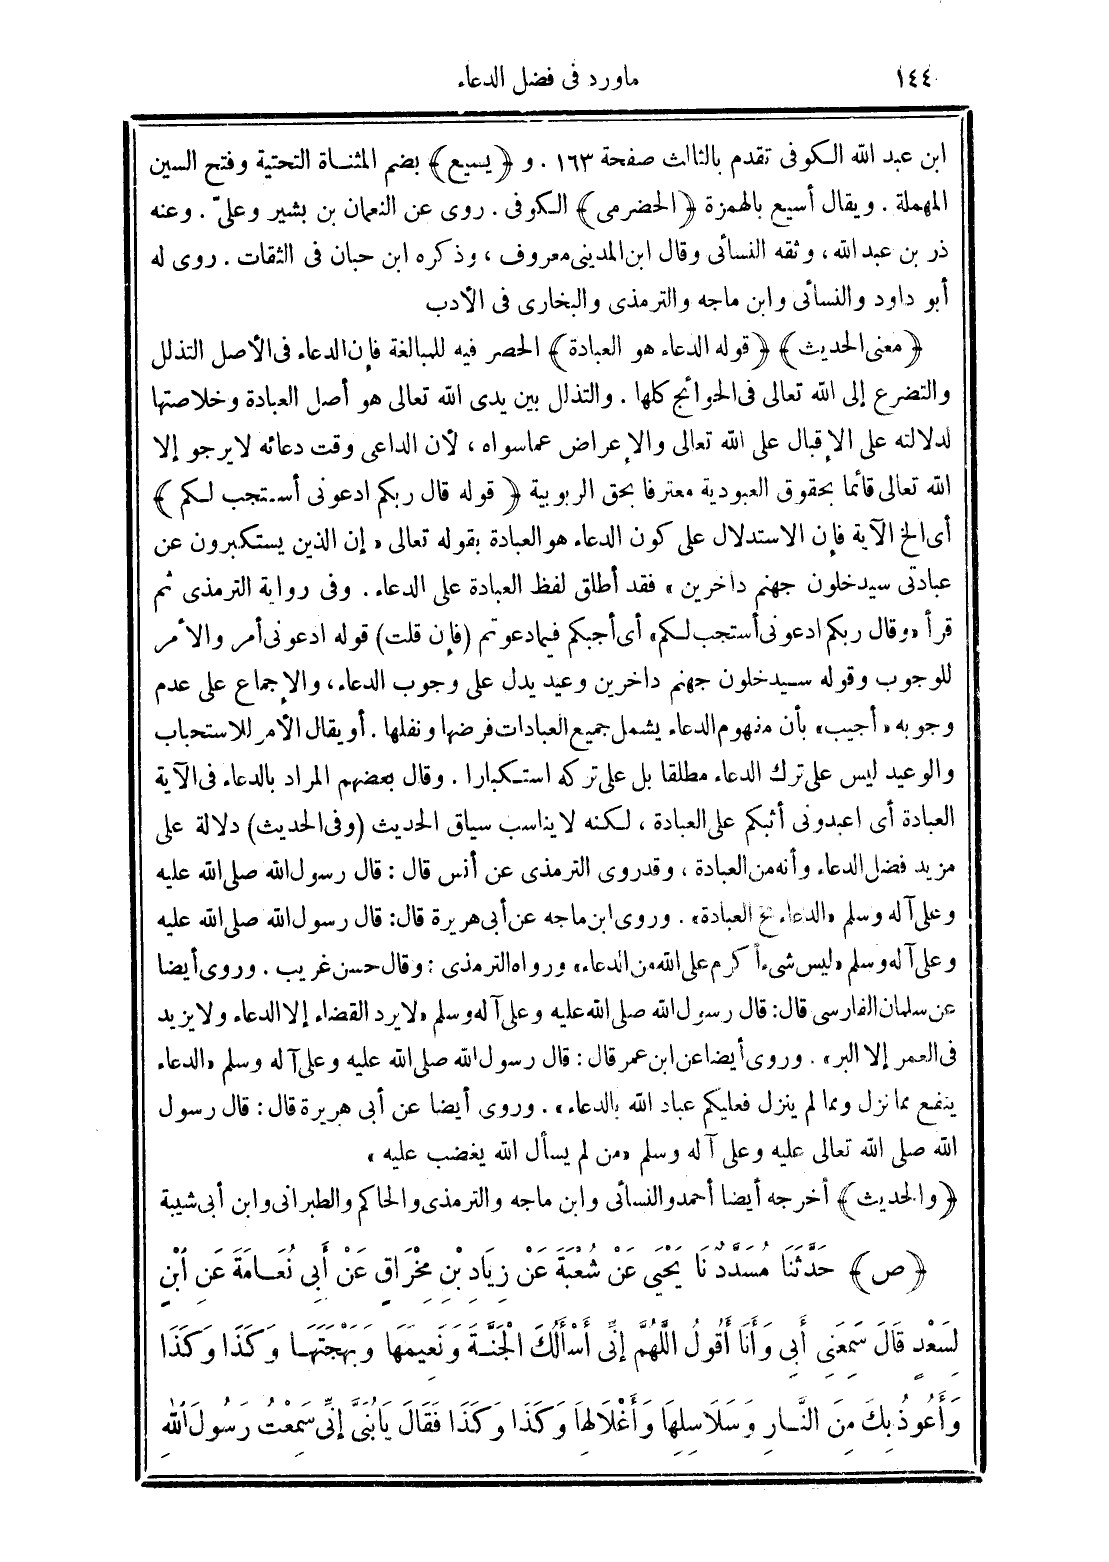 ١٤٤ ماورد فى فضل الدعاء
ابن عبد الله الكوفى تقدم بالثالث صفحة ١٦٣ . و ﴿يسيع﴾ بضم المثناة التحتية وفتح السين
المهملة . ويقال أسيع بالهمزة ﴿الحضرمى﴾ الكوفى . روى عن النعمان بن بشير وعلىّ . وعنه
ذر بن عبد الله ، وثقه النسائى وقال ابن المدينى معروف ، وذكره ابن حبان فى الثقات . روى له
أبو داود والنسائى وابن ماجه والترمذى والبخارى فى الأدب
﴿معنى الحديث﴾ ﴿قوله الدعاء هو العبادة﴾ الحصر فيه للمبالغة فإن الدعاء فى الأصل التذلل
والتضرع إلى الله تعالى فى الحوائج كلها . والتذلل بين يدى الله تعالى هو أصل العبادة وخلاصتها
لدلالته على الإقبال على الله تعالى والإعراض عما سواه ، لأن الداعى وقت دعائه لا يرجو إلا
الله تعالى قائما بحقوق العبودية معترفا بحق الربوبية ﴿ قوله قال ربكم ادعونى أستجب لكم ﴾
أى الخ الآية فإن الاستدلال على كون الدعاء هو العبادة بقوله تعالى « إن الذين يستكبرون عن
عبادتى سيدخلون جهنم داخرين » فقد أطلق لفظ العبادة على الدعاء . وفى رواية الترمذى ثم
قرأ « وقال ربكم ادعونى أستجب لكم » أى أجبكم فيما دعوتم (فإن قلت) قوله ادعونى أمر والأمر
للوجوب وقوله سيدخلون جهنم داخرين وعيد يدل على وجوب الدعاء ، والإجماع على عدم
وجوبه « أجيب » بأن مفهوم الدعاء يشمل جميع العبادات فرضها ونفلها . أو يقال الأمر للاستحباب
والوعيد ليس على ترك الدعاء مطلقا بل على تركه استكبارا . وقال بعضهم المراد بالدعاء فى الآية
العبادة أى اعبدونى أثبكم على العبادة ، لكنه لا يناسب سياق الحديث (وفى الحديث) دلالة على
مزيد فضل الدعاء وأنه من العبادة ، وقد روى الترمذى عن أنس قال : قال رسول الله صلى الله عليه
وعلى آله وسلم « الدعاء مخ العبادة » . وروى ابن ماجه عن أبى هريرة قال : قال رسول الله صلى الله عليه
وعلى آله وسلم « ليس شىء أكرم على الله من الدعاء » ورواه الترمذى : وقال حسن غريب . وروى أيضا
عن سلمان الفارسى قال : قال رسول الله صلى الله عليه وعلى آله وسلم « لا يرد القضاء إلا الدعاء ولا يزيد
فى العمر إلا البر » . وروى أيضا عن ابن عمر قال : قال رسول الله صلى الله عليه وعلى آله وسلم « الدعاء
ينفع مما نزل ومما لم ينزل فعليكم عباد الله بالدعاء » . وروى أيضا عن أبى هريرة قال : قال رسول
الله صلى الله تعالى عليه وعلى آله وسلم « من لم يسأل الله يغضب عليه »
﴿والحديث﴾ أخرجه أيضا أحمد والنسائى وابن ماجه والترمذى والحاكم والطبرانى وابن أبى شيبة
﴿ص﴾ حَدَّثَنَا مُسَدَّدٌ نَا يَحْيَى عَنْ شُعْبَةَ عَنْ زِيَادِ بْنِ مِخْرَاقٍ عَنْ أَبِى نُعَامَةَ عَنِ ابْنٍ
لِسَعْدٍ قَالَ سَمِعَنِى أَبِى وَأَنَا أَقُولُ اللَّهُمَّ إِنِّى أَسْأَلُكَ الْجَنَّةَ وَنَعِيمَهَا وَبَهْجَتَهَا وَكَذَا وَكَذَا
وَأَعُوذُ بِكَ مِنَ النَّارِ وَسَلَاسِلِهَا وَأَغْلَالِهَا وَكَذَا وَكَذَا فَقَالَ يَابُنَىَّ إِنِّى سَمِعْتُ رَسُولَ اللهِ